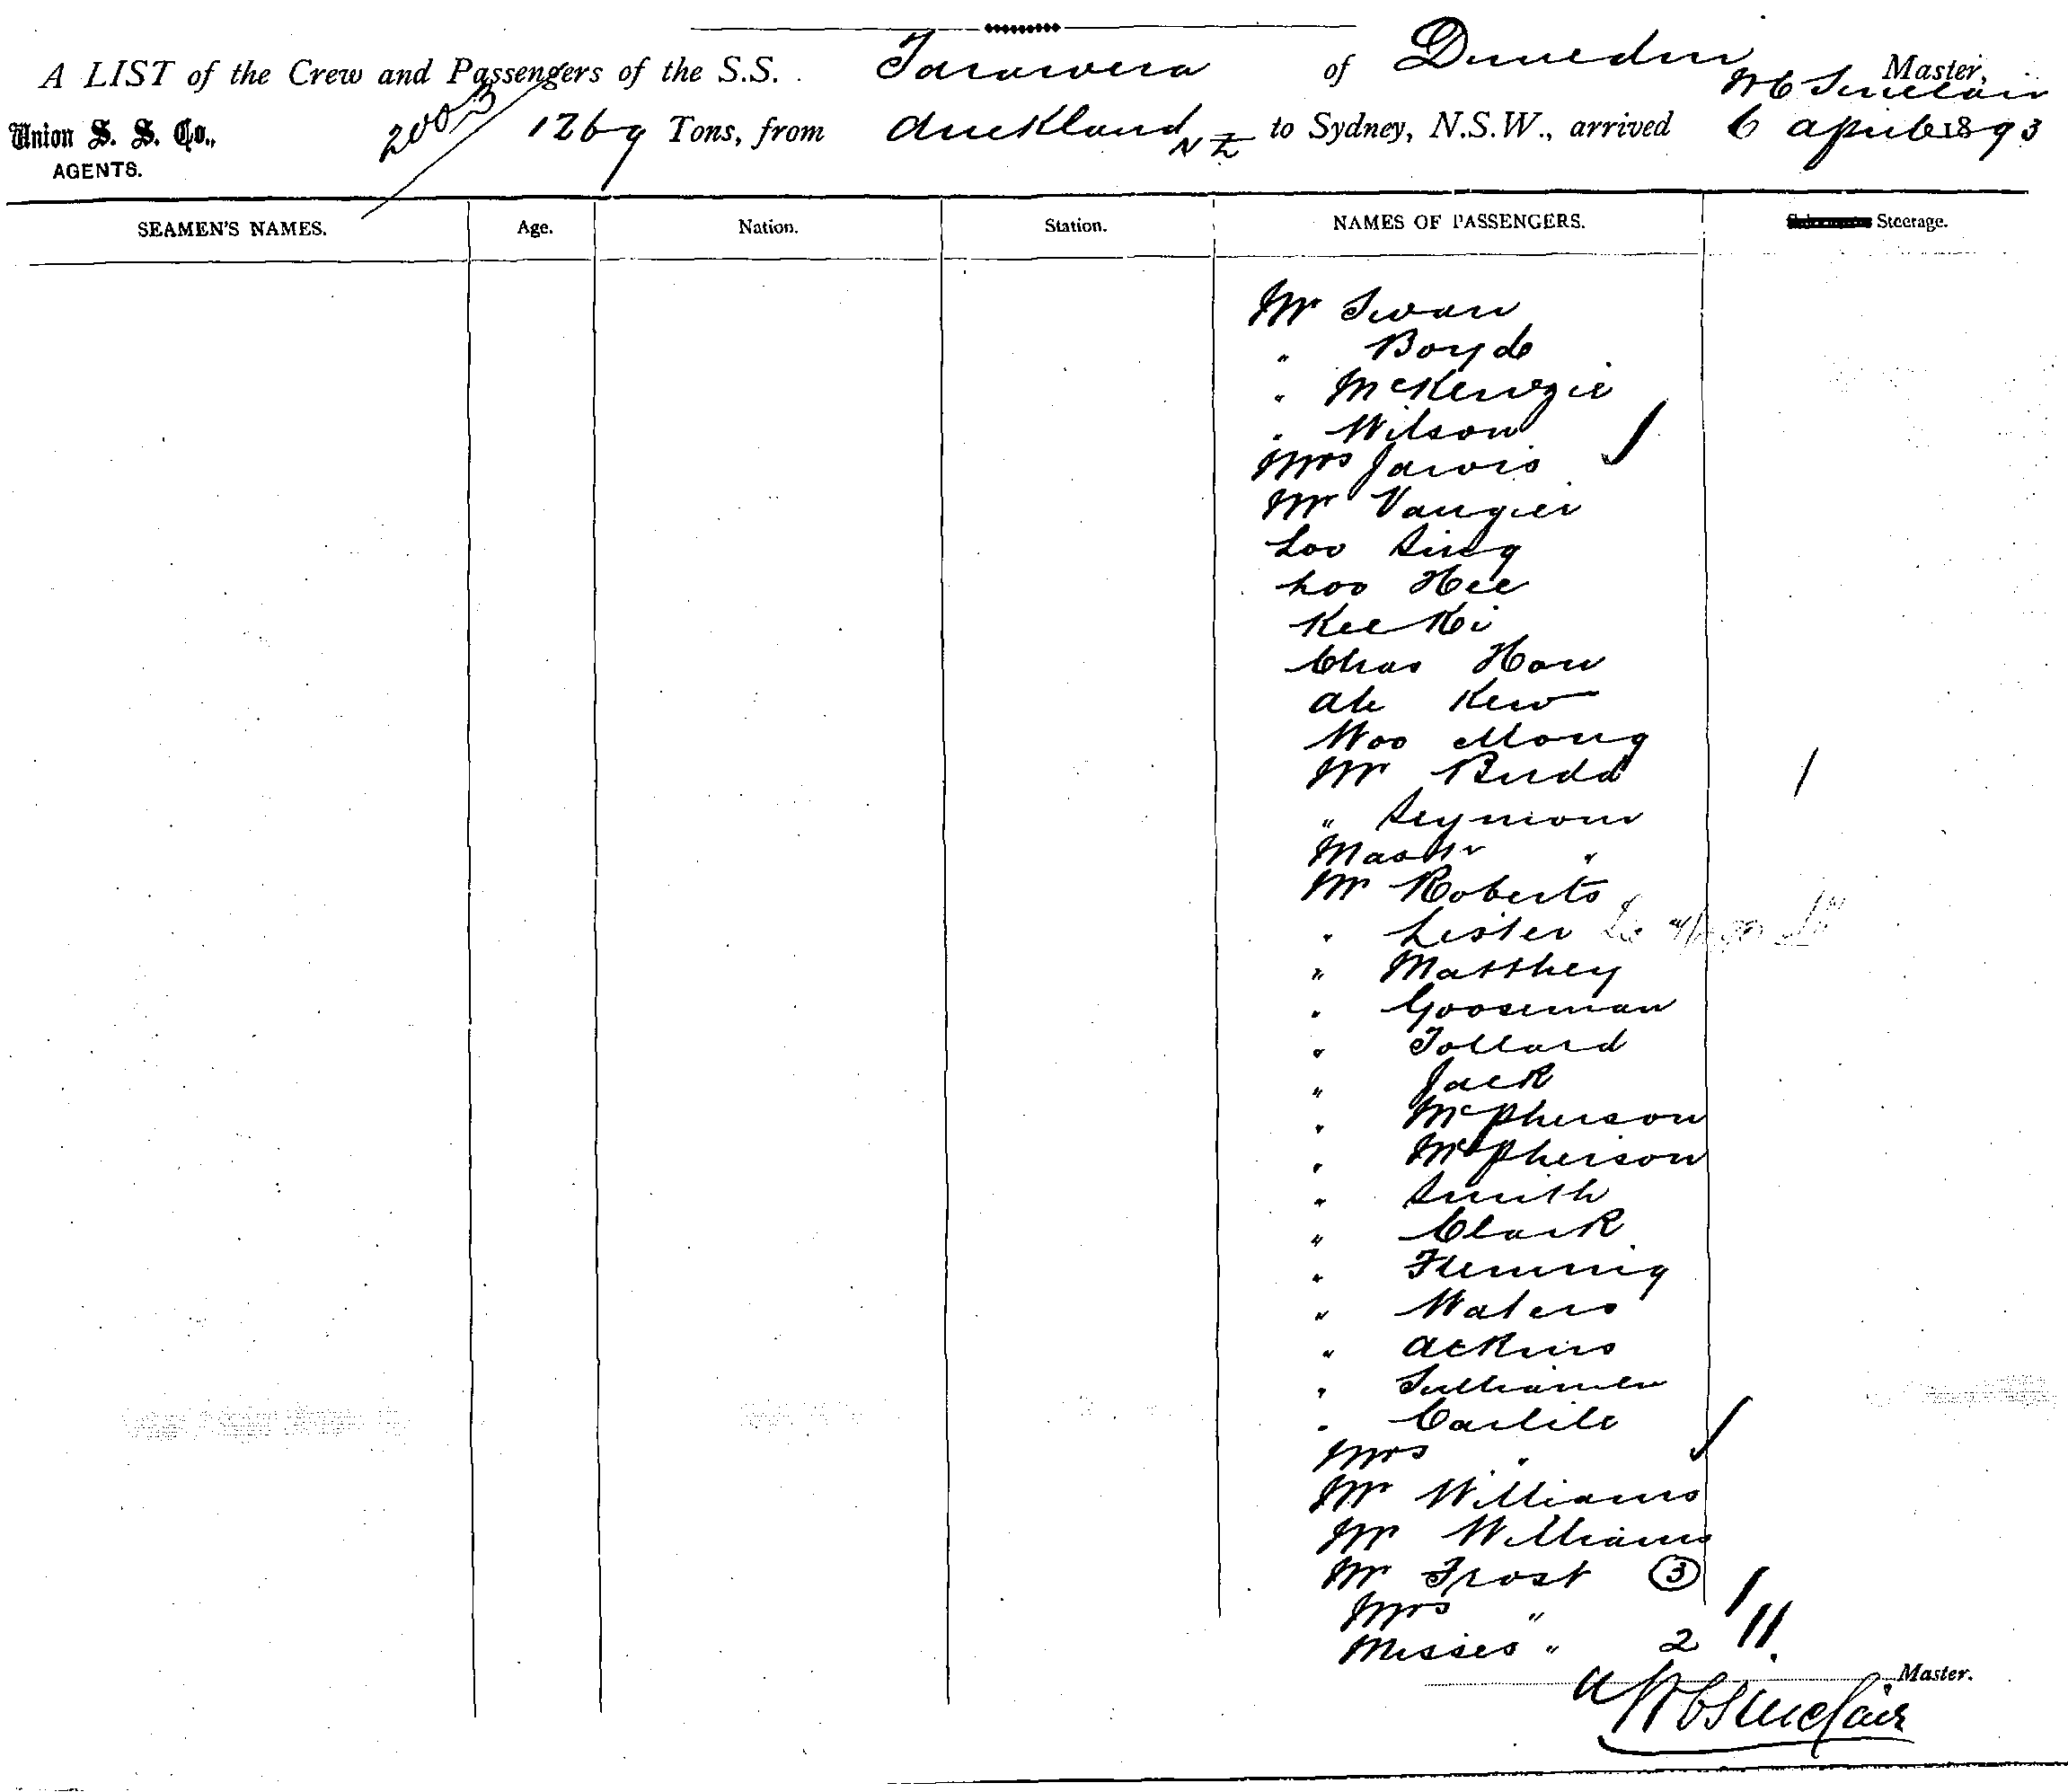 A LIST of the Crew and Passengers of the S.S. Tarawera of Dunedin W C Sinclair Master,
Union S. S. Co., 2003 1269 Tons, from Auckland NZ to Sydney, N.S.W., arrived 6 April 1893
AGENTS.
SEAMEN'S NAMES. Age. Nation. Station. NAMES OF PASSENGERS. Steerage.
Mr Swan
" Boyd
" McKenzie
" Wilson
Mrs Jarvis
Mr Vaugier
Loo Sing
Loo Hee
Kee Ki
Chas How
Ah Kew
Woo Mong
Mr Budd
" Seymour
Master "
Mr Roberts
" Lister
" Matthey
" Gooseman
" Tollard
" Jack
" McPherson
" McPherson
" Smith
" Clark
" Fleming
" Waters
" Atkins
"
" Carlile
Mrs "
Mr Williams
Mr Williams
Mr Frost 3
Mrs "
Misses " 2
Master.
W C Sinclair